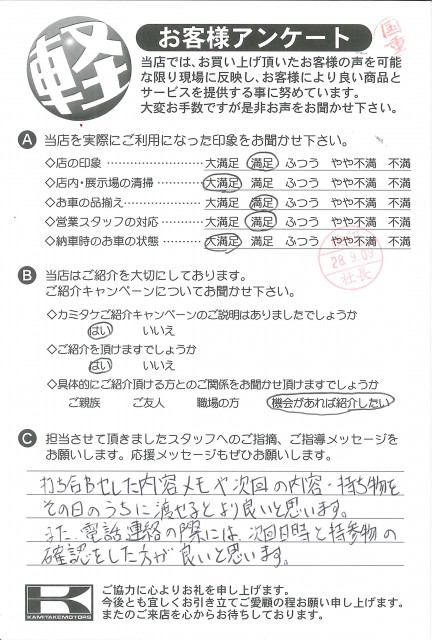 軽
お客様アンケート
国重
当店では、お買い上げ頂いたお客様の声を可能
な限り現場に反映し、お客様により良い商品と
サービスを提供する事に努めています。
大変お手数ですが是非お声をお聞かせ下さい。
A 当店を実際にご利用になった印象をお聞かせ下さい。
◇店の印象 ………………… 大満足 満足 ふつう やや不満 不満
◇店内・展示場の清掃………… 大満足 満足 ふつう やや不満 不満
◇お車の品揃え……………… 大満足 満足 ふつう やや不満 不満
◇営業スタッフの対応……… 大満足 満足 ふつう やや不満 不満
◇納車時のお車の状態……… 大満足 満足 ふつう やや不満 不満
28.9.09
社長
B 当店はご紹介を大切にしております。
ご紹介キャンペーンについてお聞かせ下さい。
◇カミタケご紹介キャンペーンのご説明はありましたでしょうか
はい いいえ
◇ご紹介を頂けますでしょうか
はい いいえ
◇具体的にご紹介頂ける方とのご関係をお聞かせ頂けますでしょうか
ご親族 ご友人 職場の方 機会があれば紹介したい
C 担当させて頂きましたスタッフへのご指摘、ご指導メッセージを
お願いします。応援メッセージもぜひお願いします。
打ち合わせした内容メモや次回の内容・持ち物を
その日のうちに渡せるとより良いと思います。
また、電話連絡の際には、次回日時と持参物の
確認をした方が良いと思います。
KAMITAKEMOTORS
ご協力に心よりお礼を申し上げます。
今後とも宜しくお引き立てご愛顧の程お願い申し上げます。
またのご来店を心からお待ちしております。